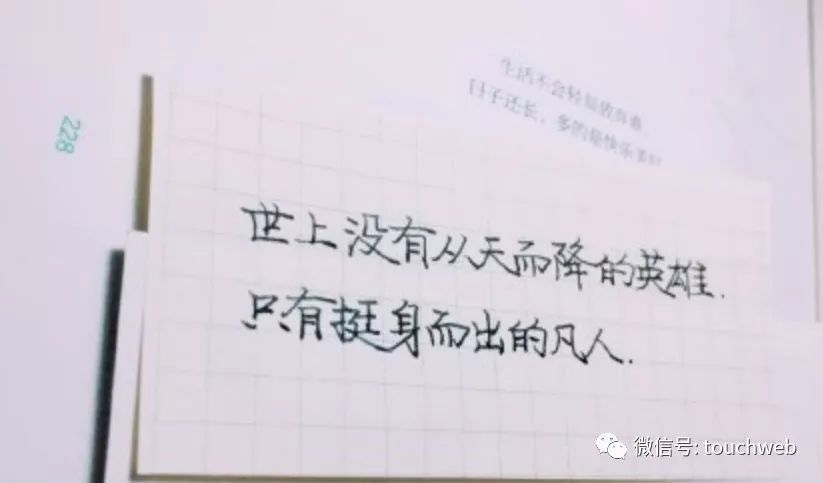 生活不会轻易放弃谁
日子还长，多的是快乐
228
世上没有从天而降的英雄.
只有挺身而出的凡人.
微信号: touchweb